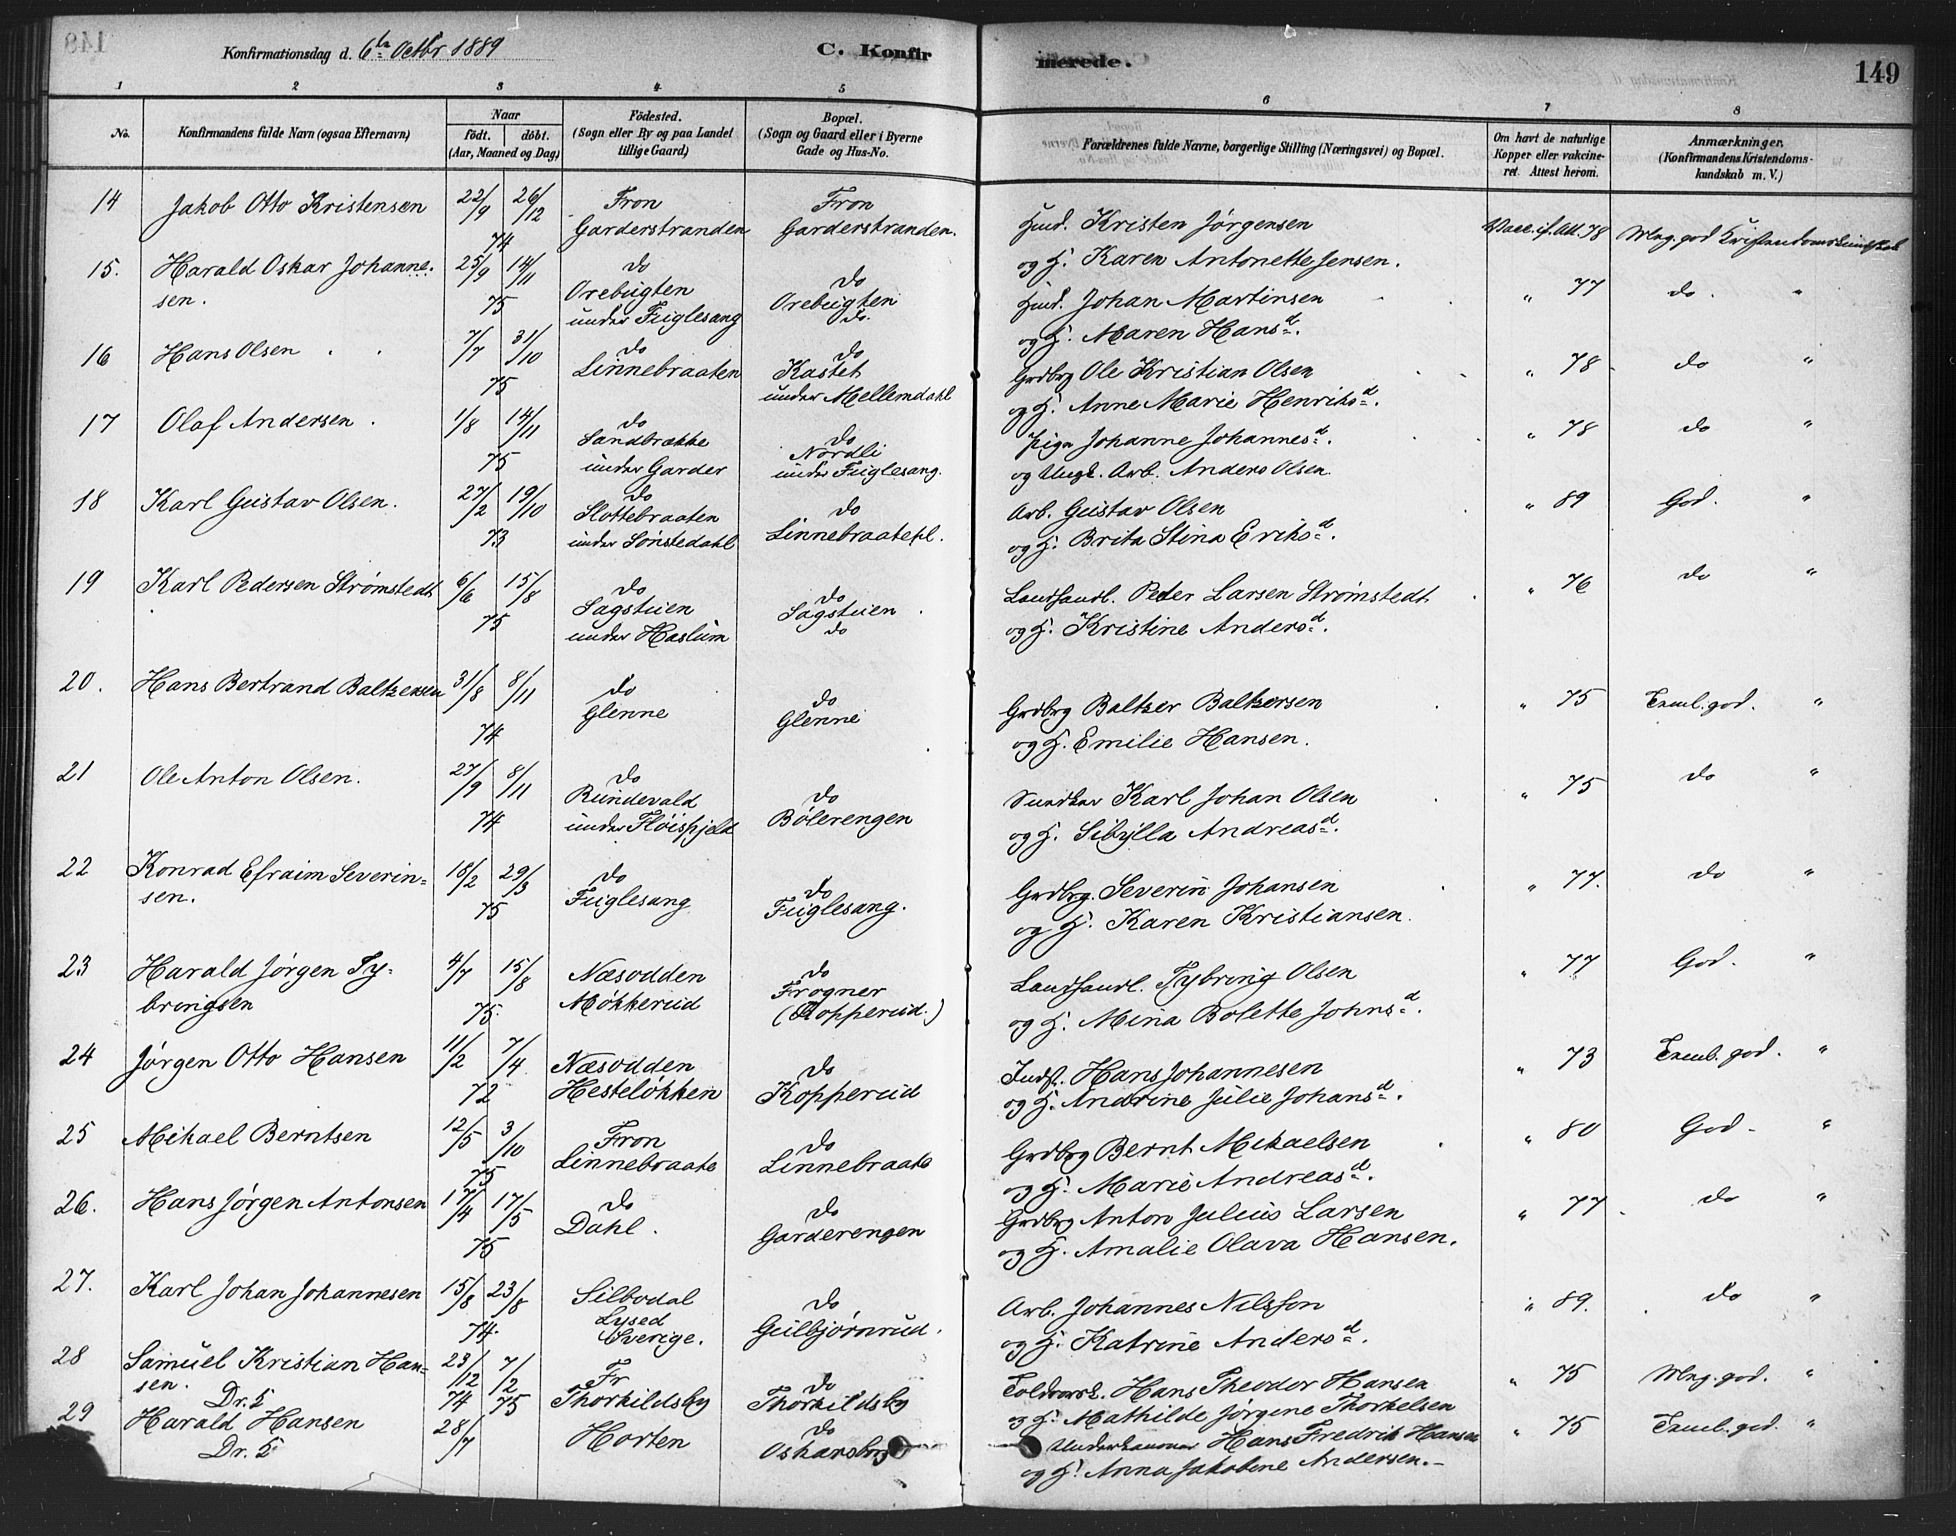 Konfirmationsdag d. 6te Octbr. 1889
C. Konfir
merede.
149
1 2 3 4 5 6 7 8
No. Konfirmandens fulde Navn (ogsaa Efternavn)
Naar
födt. döbt.
(Aar, Maaned og Dag)
Födested.
(Sogn eller By og paa Landet
tillige Gaard)
Bopæl.
(Sogn og Gaard eller i Byerne
Gade og Hus-No.
Forældrenes fulde Navne, borgerlige Stilling (Næringsvei) og Bopæl.
Om havt de naturlige
Kopper eller vakcine-
ret. Attest herom.
Anmærkninger.
(Konfirmandens Kristendoms-
kundskab m. V.)
14 Jakob Otto Kristensen 22/9 26/12 Fron Fron
74 Garderstranden Garderstranden.
Kristen Jørgensen Vacc. if. Att. 78 Mng. god Kristendomskundskab
og H. Karen Antonette Jensen.
15. Harald Oskar Johanne- 25/9 14/11 do do
sen. 75 Orebugten Orebugten
under Fuglesang do.
Johan Martinsen " 77 do. "
og H. Maren Hansd.
16 Hans Olsen 7/7 31/10 do do
75 Linnebraaten Kastet
under Mellemdahl
Grdbrg Ole Kristian Olsen " 78 do "
og H. Anne Marie Henriksd.
17 Olaf Andersen. 1/8 14/11 do do
75 Sandbrække Nordli
under Garder under Fuglesang.
Pige Johanne Johannesd. " 78 do "
og Ungk. Arb. Anders Olsen
18 Karl Gustav Olsen. 27/2 19/10 do do
73 Slottebraaten Linnebraatepl.
under Sønstedahl
Arb. Gustav Olsen " 89 God. "
og H. Brita Stina Eriksd.
19 Karl Pedersen Strømstedt 6/6 15/8 do do
75 Sagstuen Sagstuen
under Haslum do
Landhandl. Peder Larsen Strømstedt " 76 do "
og H. Kristine Andersd.
20. Hans Bertrand Baltzersen 31/8 8/11 do do
74 Glenne Glenne
Grdbrg Baltzer Baltzersen " 75 Temml. god. "
og H. Emilie Hansen.
21 Ole Anton Olsen. 27/9 8/11 do do
74 Rundevald Bølerengen
under Fløispjeld
Snedker Karl Johan Olsen " 75 do "
og H. Sibylla Andreasd.
22 Konrad Efraim Severin- 18/2 29/3 do do
sen. 75 Fuglesang Fuglesang.
Grdbrg. Severin Johansen " 77. do "
og H. Karen Kristiansen.
23 Harald Jørgen Ty- 4/7 15/8 Næsodden do
bringsen 75. Møkkerud Frogner
(Kopperud.)
Landhandl. Tybring Olsen " 77 God. "
og H. Mina Bolette Johnsd.
24 Jørgen Otto Hansen 11/2 7/4 Næsodden do
72 Hesteløkken Kopperud
Indst. Hans Johannesen " 73 Temml. god. "
og H. Andrine Julie Johansd.
25 Mikael Berntsen 12/5 3/10 Fron do
75 Linnebraate Linnebraate
Grdbrg Bernt Mikaelsen " 80 God - "
og H. Marie Andreasd.
26. Hans Jørgen Antonsen 17/4 17/5 do do
75 Dahl. Garderengen
Grdbrg Anton Julius Larsen " 77 do "
og H. Amalie Olava Hansen.
27. Karl Johan Johannesen 15/8 23/8 Silbodal do
74. Lysed Gulbjørnrud.
Sverige.
Arb. Johannes Nilsson " 89. do "
og H. Katrine Andersd.
28 Samuel Kristian Han- 23/12 7/2 Fr do
sen. 74 75 Thorkildsby Thorkildsby
Dr. 5
Toldopps. Hans Theodor Hansen " 75 Mng. god. "
og H. Mathilde Jørgine Thorkelsen
29 Harald Hansen 28/7 Horten do
Dr. 5 Oskarsborg
Underkanoner Hans Fredrik Hansen " 75 Temml. god. "
og H. Anna Jakobine Andersen. -